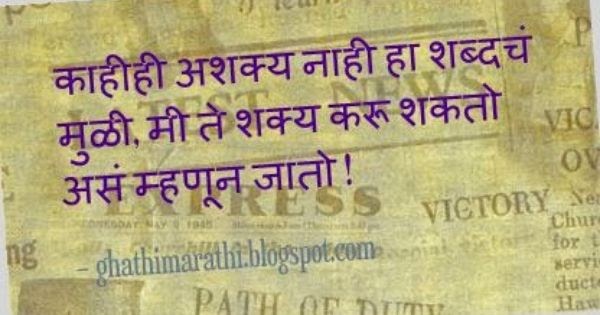 काहीही अशक्य नाही हा शब्दचं
मुळी, मी ते शक्य करू शकतो
असं म्हणून जातो !
- ghathimarathi.blogspot.com
TEST NEWS
EXPRESS
WEDNESDAY MAY 9 1945
VICTORY
PATH OF DUTY
VIC
OV
Chur
for t
servi
duct
Haw
ng